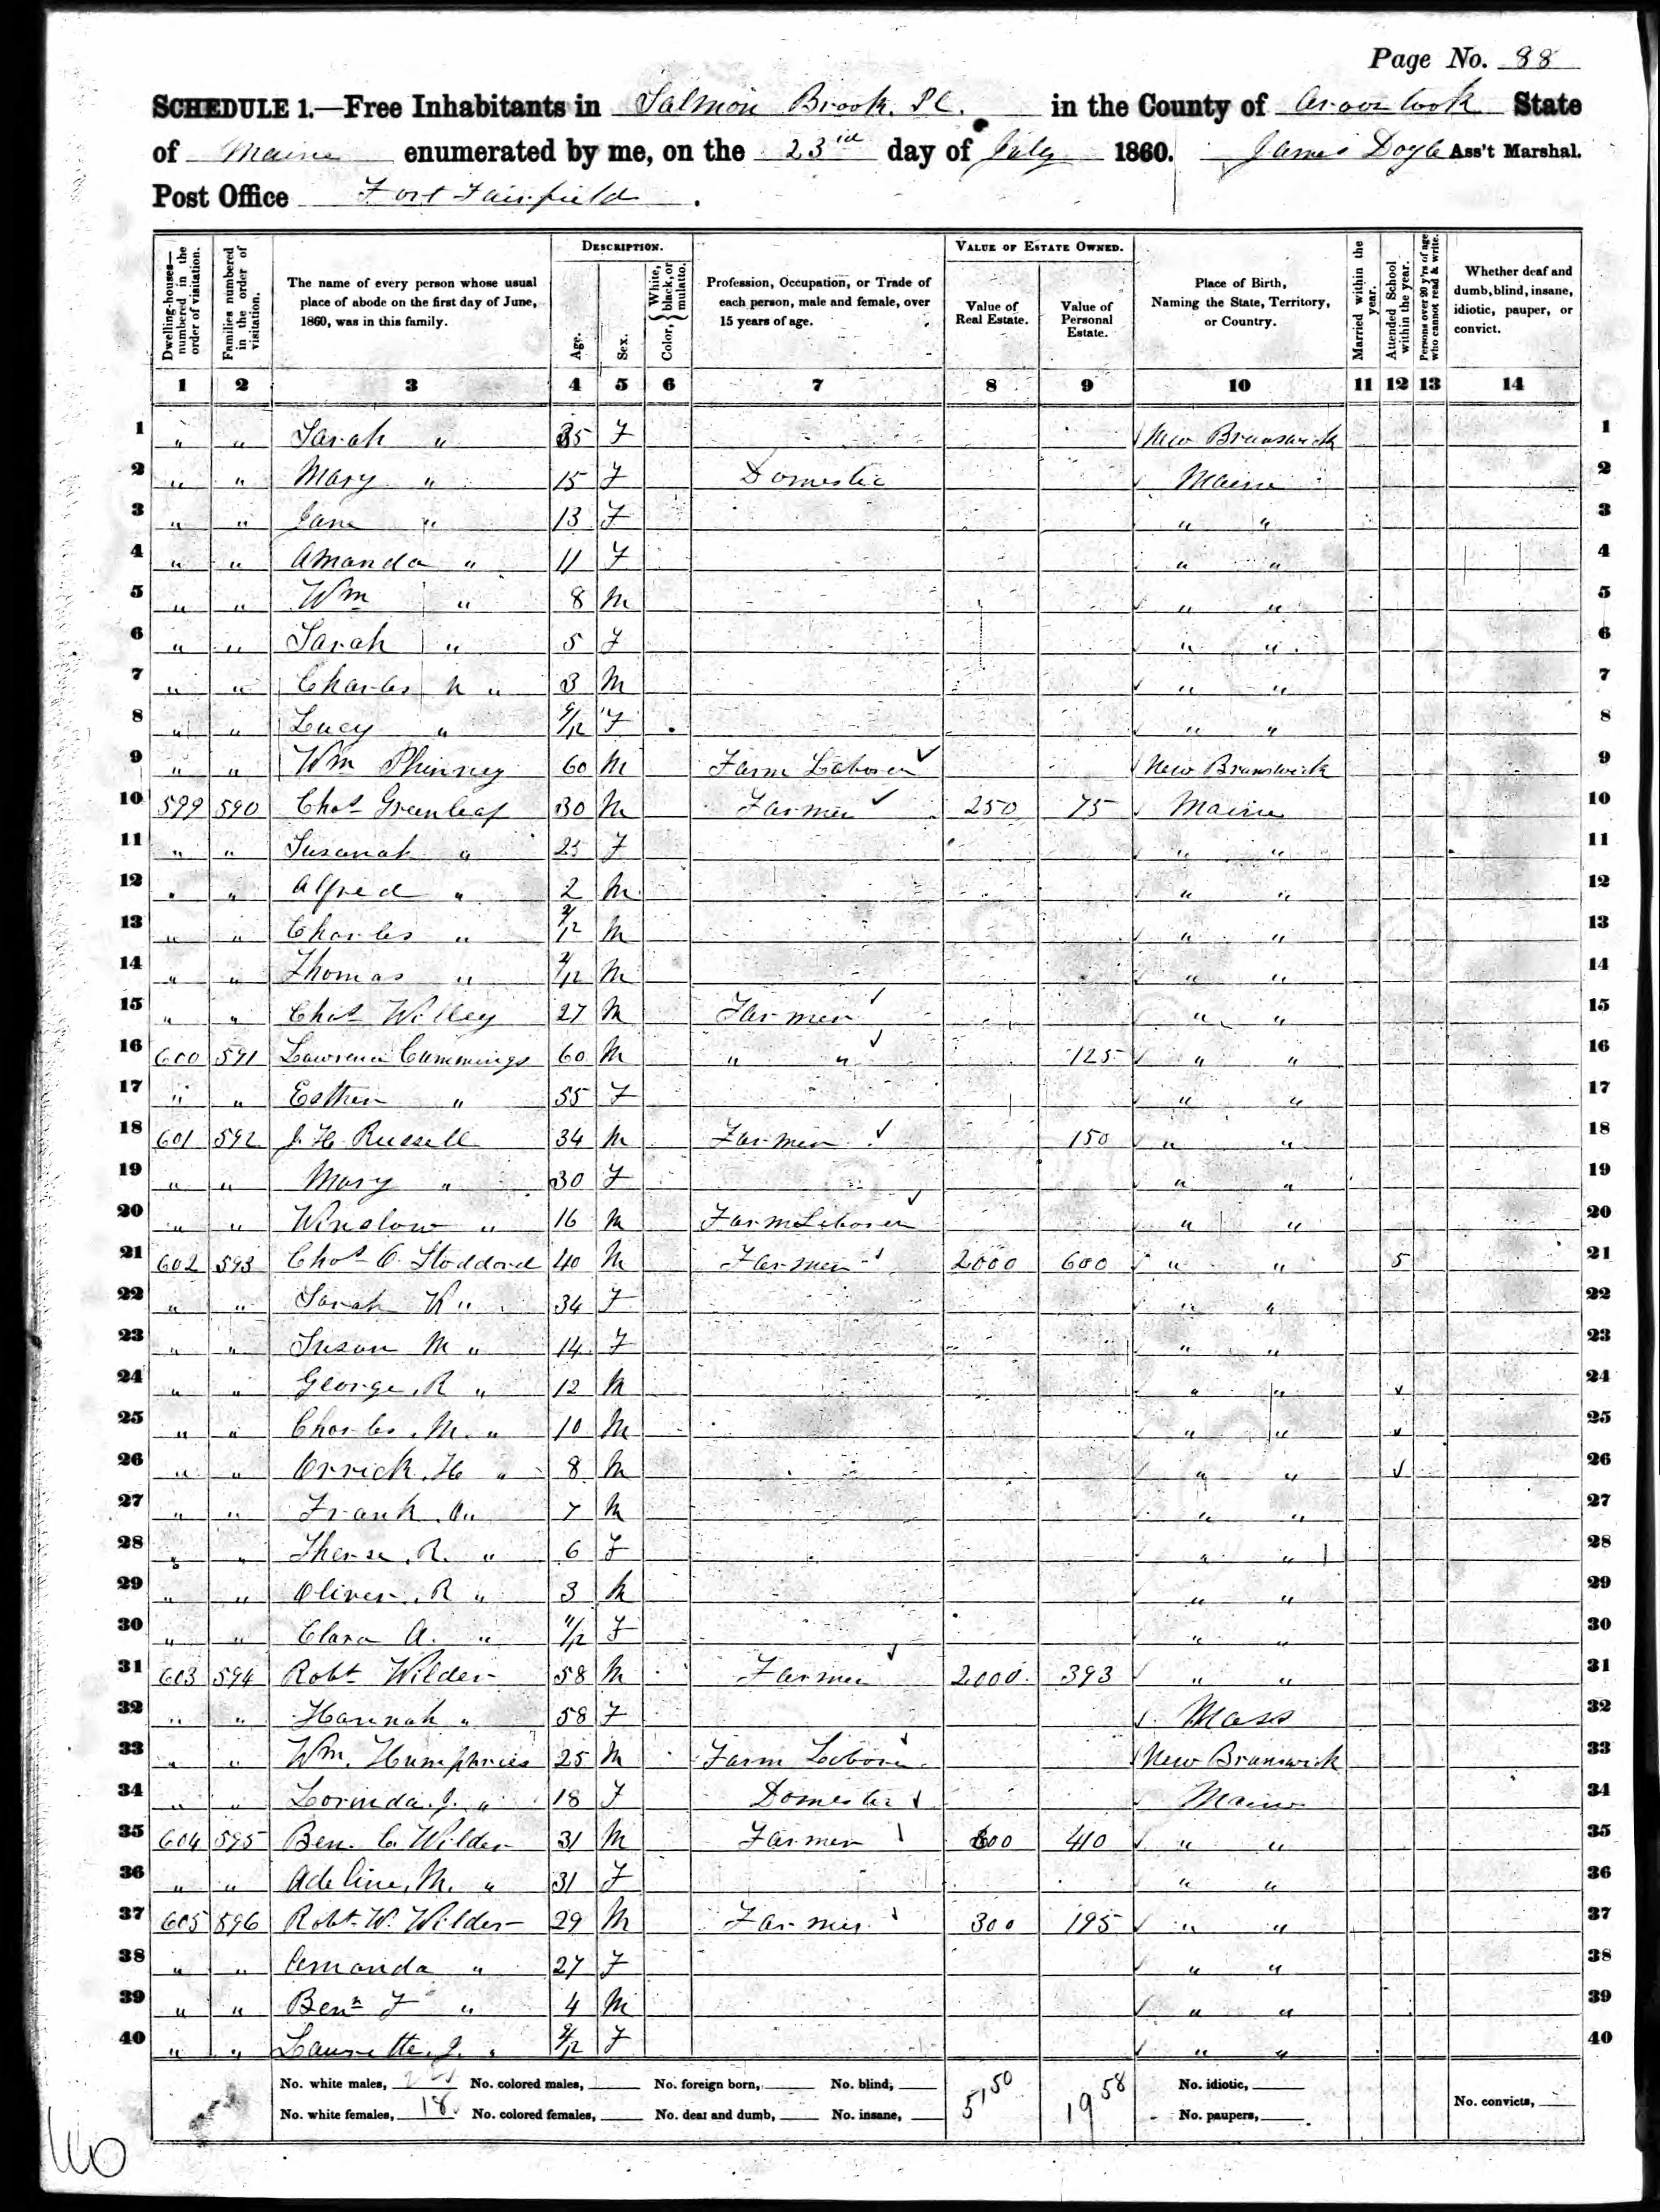 Page No. 88
SCHEDULE 1.—Free Inhabitants in Salmon Brook. Pl. in the County of Aroostook State
of Maine enumerated by me, on the 23rd day of July 1860. James Doyle Ass't Marshal.
Post Office Fort Fairfield.
DESCRIPTION. VALUE OF ESTATE OWNED.
Dwelling-houses—numbered in the order of visitation. Families numbered in the order of visitation. The name of every person whose usual place of abode on the first day of June, 1860, was in this family. Age. Sex. Color, {White, black, or mulatto. Profession, Occupation, or Trade of each person, male and female, over 15 years of age. Value of Real Estate. Value of Personal Estate. Place of Birth, Naming the State, Territory, or Country. Married within the year. Attended School within the year. Persons over 20 y'rs of age who cannot read & write. Whether deaf and dumb, blind, insane, idiotic, pauper, or convict.
1 2 3 4 5 6 7 8 9 10 11 12 13 14
1 " " Sarah " 35 F New Brunswick 1
2 " " Mary " 15 F Domestic Maine 2
3 " " Jane " 13 F " " 3
4 " " Amanda " 11 F " " 4
5 " " Wm " 8 M " " 5
6 " " Sarah " 5 F " " 6
7 " " Charles " 3 M " " 7
8 " " Lucy " 9/12 F " " 8
9 " " Wm Phinney 60 M Farm Laborer New Brunswick 9
10 599 590 Chas Greenleaf 30 M Farmer 250 75 Maine 10
11 " " Susanah " 25 F " " 11
12 " " Alfred " 2 M " " 12
13 " " Charles " 2/12 M " " 13
14 " " Thomas " 2/12 M " " 14
15 " " Chas Willey 27 M Farmer " " 15
16 600 591 Lawrence Cummings 60 M " " 125 " " 16
17 " " Esther " 55 F " " 17
18 601 592 J. H. Russell 34 M Farmer 150 " " 18
19 " " Mary " 30 F " " 19
20 " " Winslow " 16 M Farm Laborer " " 20
21 602 593 Chas O. Stoddard 40 M Farmer 2000 600 " " 5 21
22 " " Sarah K " 34 F " " 22
23 " " Susan M " 14 F " " 23
24 " " George. R " 12 M " " ✓ 24
25 " " Charles. M. " 10 M " " ✓ 25
26 " " Orrick. H " 8 M " " ✓ 26
27 " " Frank. O " 7 M " " 27
28 " " R. " 6 F " " 28
29 " " Oliver. R " 3 M " " 29
30 " " Clara A. " 11/12 F " " 30
31 603 594 Robt Wilder 58 M Farmer 2000 393 " " 31
32 " " Hannah " 58 F Mass 32
33 " " Wm. Humphries 25 M Farm Laborer New Brunswick 33
34 " " Lorinda. J. " 18 F Domestic Maine 34
35 604 595 Ben. C. Wilder 31 M Farmer 600 410 " " 35
36 " " Adeline. M. " 31 F " " 36
37 605 596 Robt. W. Wilder 29 M Farmer 300 195 " " 37
38 " " Amanda " 27 F " " 38
39 " " Benn F " 4 M " " 39
40 " " Laurette. J. " 9/12 F " " 40
No. white males, No. colored males, No. foreign born, No. blind, 5150 1958 No. idiotic,
No. white females, 18. No. colored females, No. deaf and dumb, No. insane, No. paupers, No. convicts,